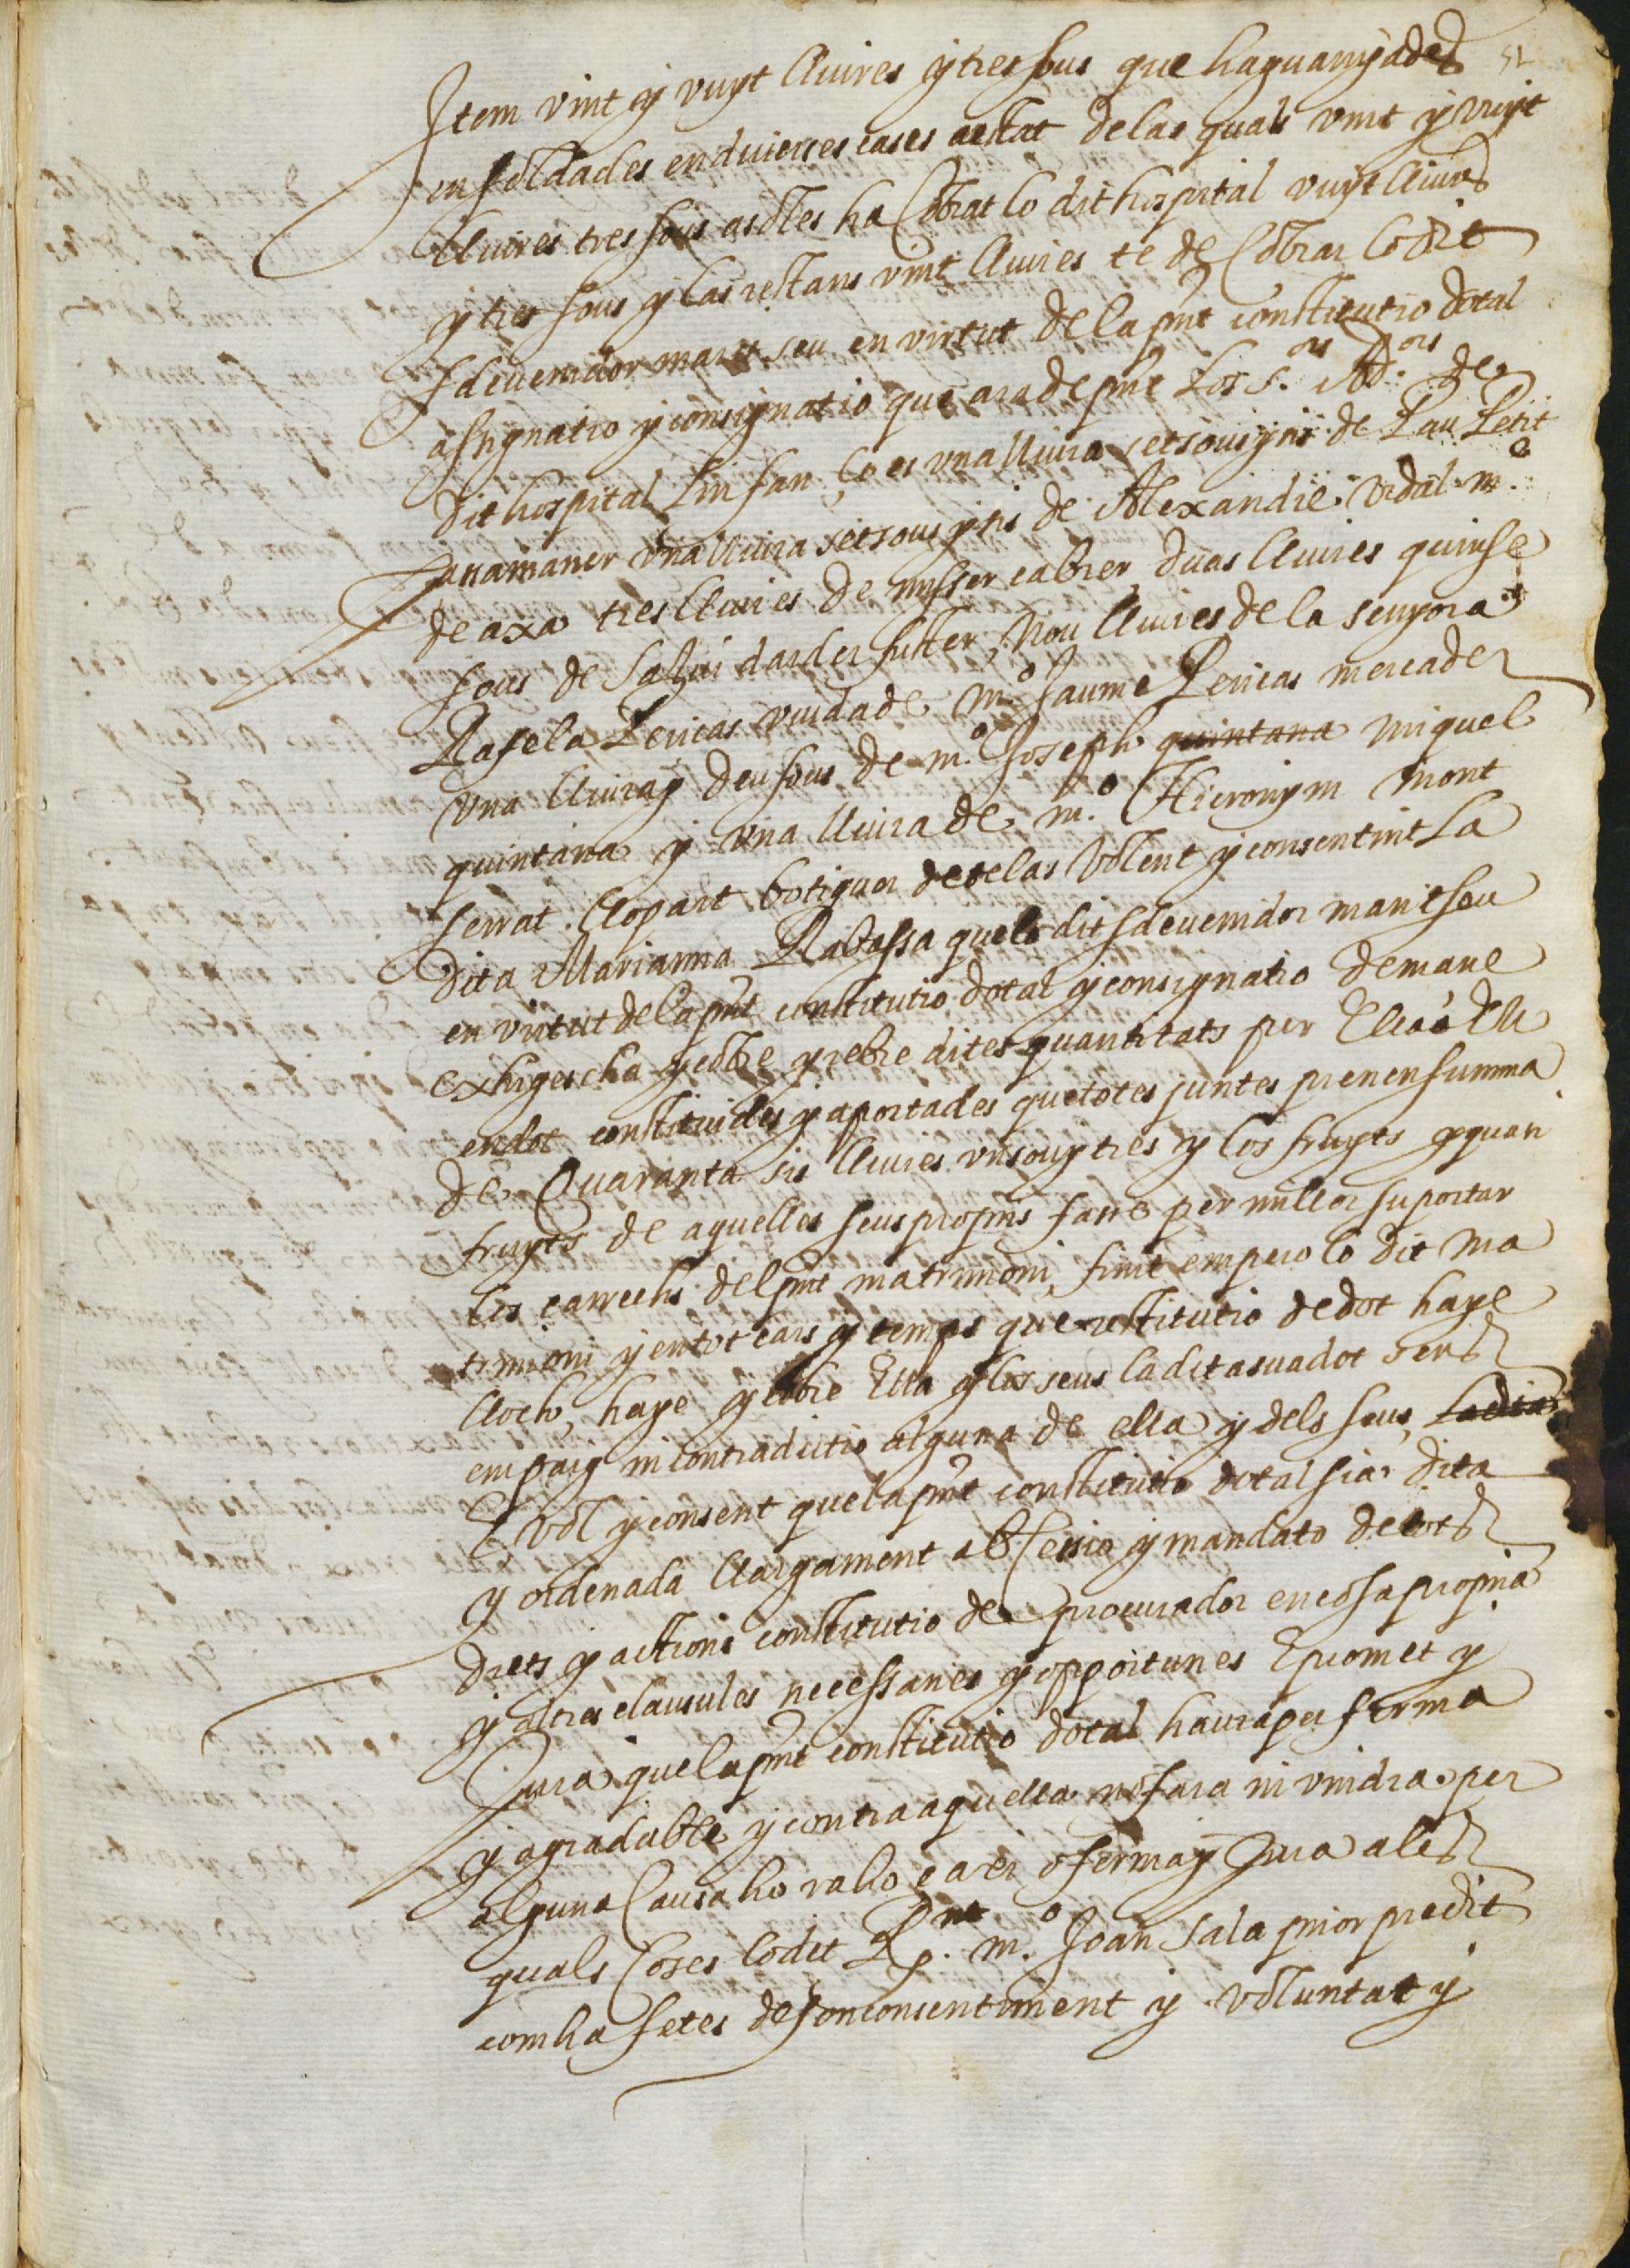 51
Item vint y vuyt lliures y tres sous que ha guanyades
en soldades en diuerces cases aestat de las quals vint y vuyt
lliures tres sous as dles ha Cobrat lo dit hospital vuyt lliures
y tres sous y las restans vint lliures te de Cobrar lo dit
sdeuenidor marit seu en virtut de la pnt constitutio dotal
assignatio y consignatio que ara de pnt los s.ors Ad.ors de
dit hospital lin fan, ço es vna lliura set sous y sis de Pau Petit
una lliura set sous y sis de Alexandre Vidal m.o
de axa tres lliures de misser cabrer, duas lliures quinse
sous de Salui darder fuster, nou lliures de la senyora
Rafela Pericas viuda de m.o Jaume Pericas mercader
vna lliura y deu sous de m.o Joseph quintana miquel
quintana y vna lliura de m.o Hieronym Mont
serrat. llopart botiguer de telas volent y consentint la
dita Marianna Rabassa que lo dit sdeuenidor marit seu
en virtut de la pnt constitutio dotal y consignatio demane
exhigescha y cobre y rebie dites quantitats per Ella a Ell
en dot constituides y aportades que totes juntes prenen summa
de Quaranta sis lliures vn sou y tres y los fruyts y quan
fruyts de aquelles seus propris fasse per millor suportar
los carrechs del pnt matrimoni, finit empero lo dit ma
trimoni y en tot cars y temps que restitutio de dot haye
lloch, haye y cobre Ella y los seus la dita sua dot sens
empaig ni contradictio alguna de ella y dels seus, la dita
E vol y consent que la pnt constitutio dotal sia dita
y ordenada llargament ab Cessio y mandato de tots
drets y actions constitutio de procurador en cosa propria
y altres clausules necessaries y opportunes E promet y
Jura que la pnt constitutio dotal haura per ferma
y agradable, y contra aquella no fara ni vindra per
alguna Causa ho raho e a es o ferma y Jura a les
quals Coses lo dit R.nt m.o Joan Sala prior predit
com ha fetes de son consentiment y voluntat y